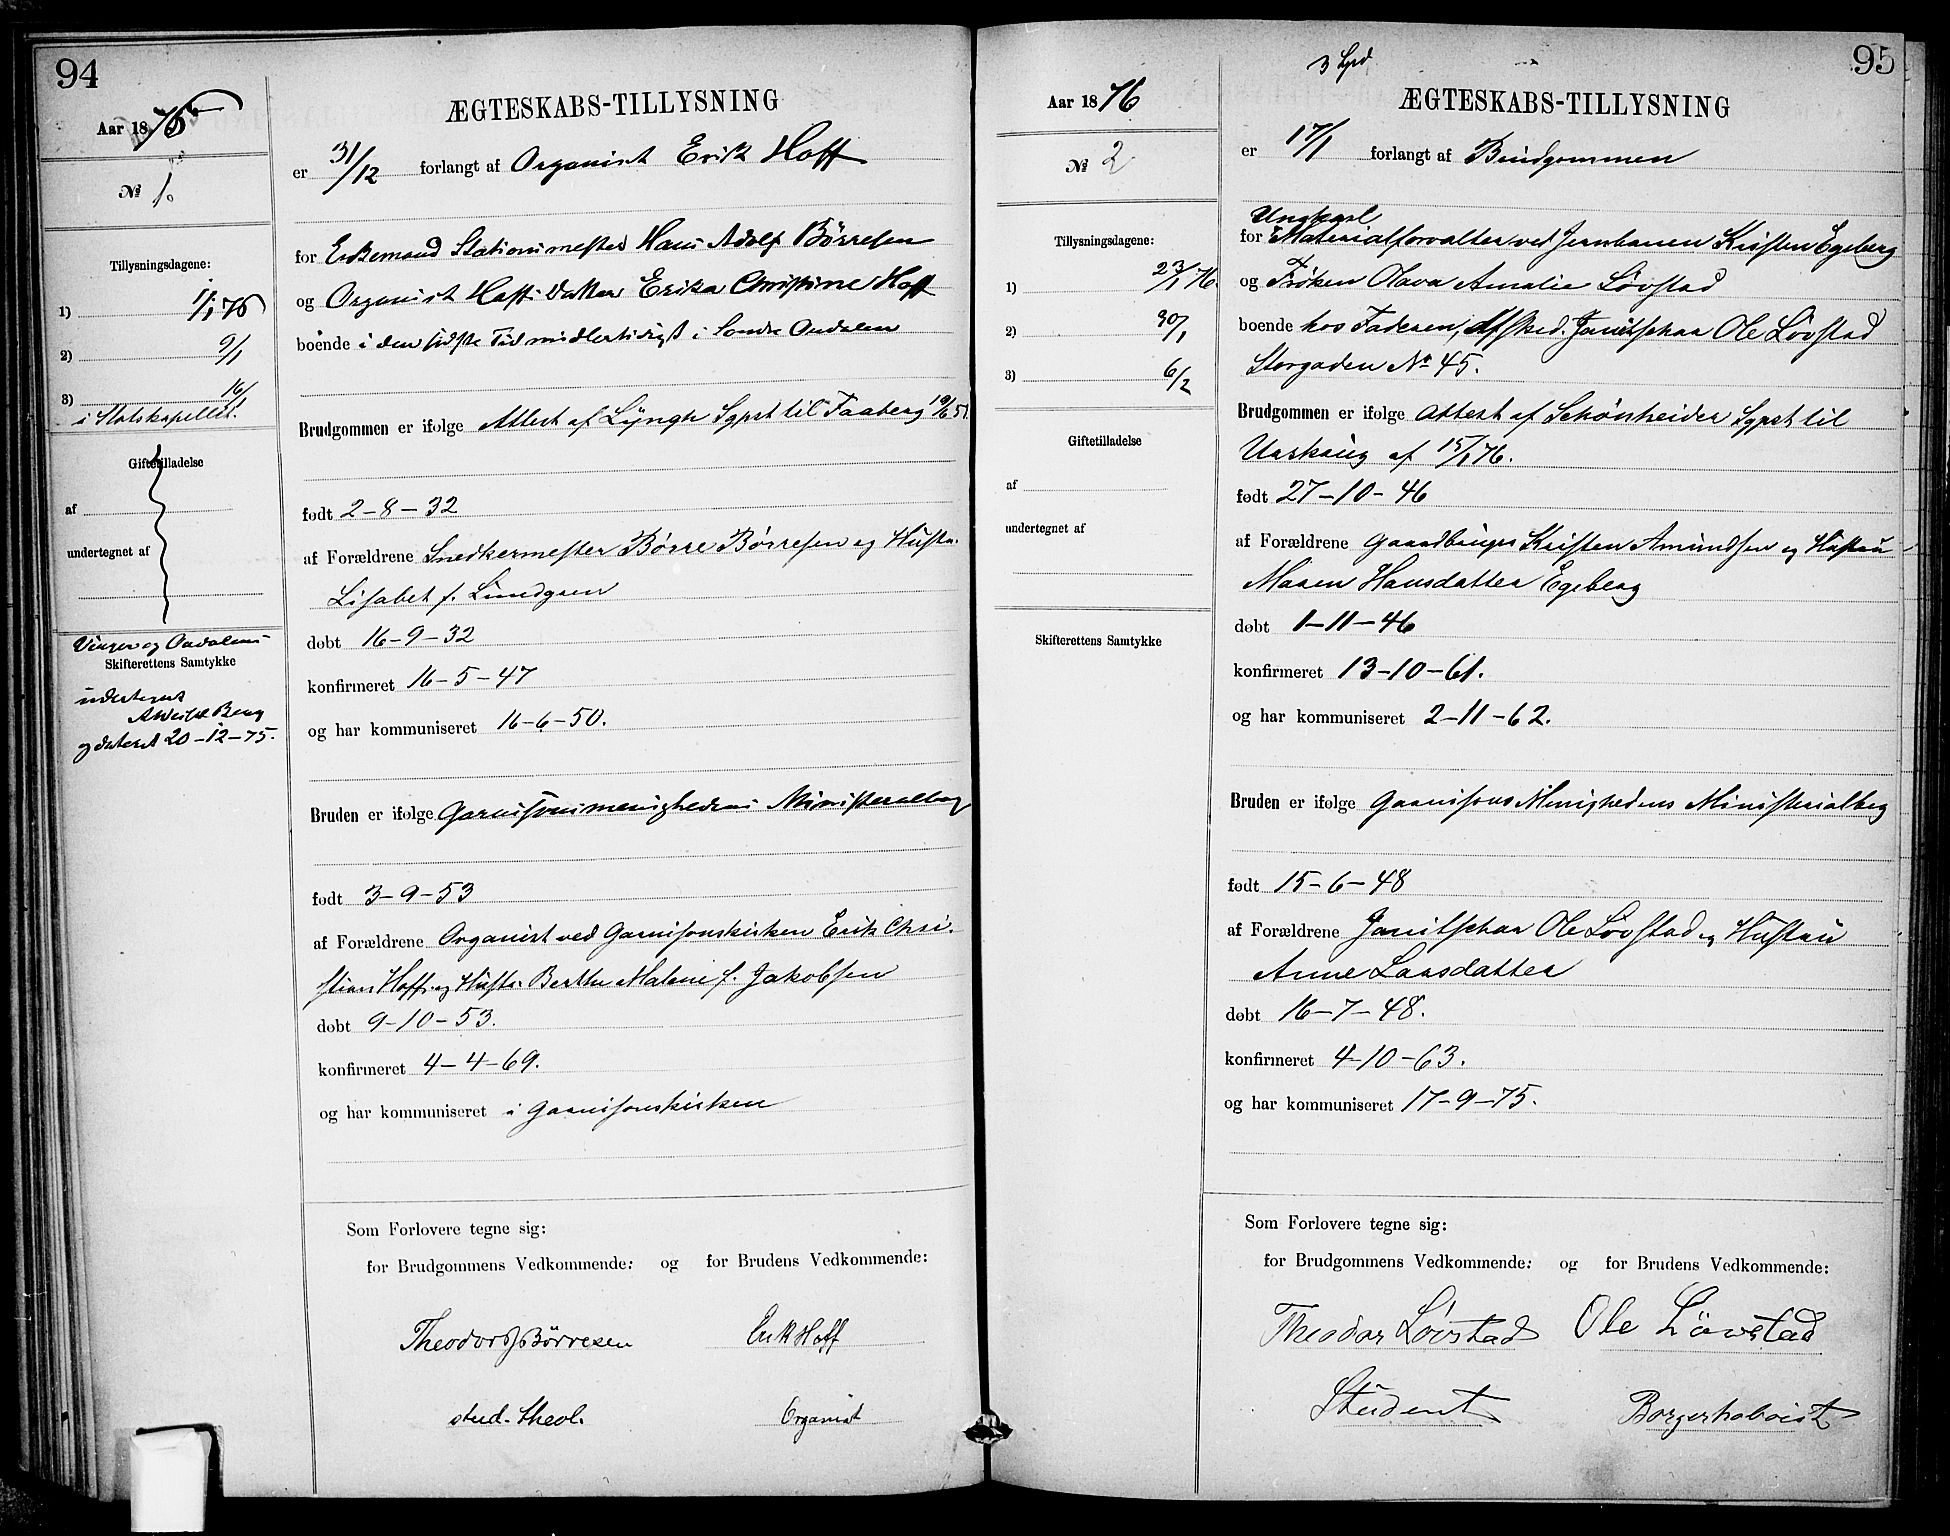 94
Aar 1875
№ 1.
Tillysningsdagene:
1) 1/1 76
2) 9/1
3) 16/1
i Slotskapellet.
Giftetilladelse
af
undertegnet af
Vinger og Oudalens
Skifterettens Samtykke
undertegnet
Berg
og dateret 20-12-75.
ÆGTESKABS-TILLYSNING
er 31/12 forlangt af Organist Erik Hoff
for Enkemand Stationsmester Hans Adolf Börresen
og Organist Hoffs Datter Erika Christine Hoff
boende i den sidste Tid midlertidigt i Søndre Oudalen
Brudgommen er ifølge Attest af Lyngh Sgpst til Faaberg 19/6 51.
født 2-8-32
af Forældrene Snedkermester Börre Börresen og Hustru
Lisabet f. Lundgren
døbt 16-9-32
konfirmeret 16-5-47
og har kommuniseret 16-6-50.
Bruden er ifølge Garnisonsmenighedens Ministerialbog
født 3-9-53
af Forældrene Organist ved Garnisonskirken Erik Chri-
stian Hoff og Hustru Berthe Malene f. Jakobsen
døbt 9-10-53.
konfirmeret 4-4-69.
og har kommuniseret i Garnisonskirken
Som Forlovere tegne sig:
for Brudgommens Vedkommende: og for Brudens Vedkommende:
Theodor Börresen Erik Hoff
stud. theol. Organist
95
Aar 1876
№ 2
Tillysningsdagene:
1) 23/1 76
2) 30/1
3) 6/2
Giftetilladelse
af
undertegnet af
Skifterettens Samtykke
3 Spd
ÆGTESKABS-TILLYSNING
er 17/1 forlangt af Brudgommen
Ungkarl
for Materialforvalter ved Jernbanen Kristen Egeberg
og Frøken Olava Amalie Lövstad
boende hos Faderen, Afsked. Janitschar Ole Lövstad
Storgaden No 45.
Brudgommen er ifølge Attest af Schönheider Sgpst til
Urskoug af 15/1 76.
født 27-10-46
af Forældrene Gaardbruger Kristen Amundsen og Hustru
Maren Hansdatter Egeberg
døbt 1-11-46
konfirmeret 13-10-61.
og har kommuniseret 2-11-62.
Bruden er ifølge Garnisons Menighedens Ministerialbog
født 15-6-48
af Forældrene Janitschar Ole Lövstad og Hustru
Anne Larsdatter
døbt 16-7-48.
konfirmeret 4-10-63.
og har kommuniseret 17-9-75.
Som Forlovere tegne sig:
for Brudgommens Vedkommende: og for Brudens Vedkommende:
Theodor Lövstad Ole Lövstad
Student Borgerhoboist